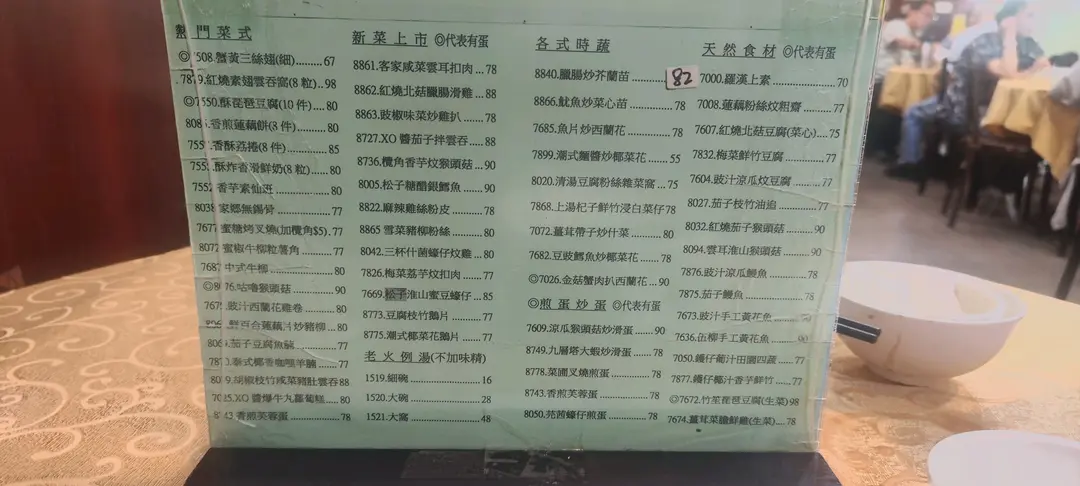 熱門菜式
◎508.蟹黃三絲翅(細)......67
.紅燒素翅雲吞窩(8 粒)..98
◎7550.酥琵琶豆腐(10 件)....80
香煎蓮藕餅(8 件)..........80
香酥荔捲(8 件)..............85
酥炸香滑鮮奶(8 粒).......80
7552.香芋素仙班............80
8038.家鄉無錫骨............77
7677.蜜糖烤叉燒(加欖角$5).77
8072.蜜椒牛柳粒薯角........77
中式牛柳...............80
咕嚕猴頭菇............90
豉汁西蘭花雞卷.......80
鮮百合蓮藕片炒豬柳...80
茄子豆腐魚
泰式椰香咖喱羊腩.....77
胡椒枝竹咸菜豬肚雲吞88
XO 醬爆牛丸蘿蔔糕....80
香煎芙蓉蛋..............78
新菜上市 ◎代表有蛋
8861.客家咸菜雲耳扣肉...78
8862.紅燒北菇臘腸滑雞...88
8863.豉椒味菜炒雞扒.......78
8727.XO 醬茄子拌雲吞.....88
8736.欖角香芋炆猴頭菇...90
8005.松子糖醋銀鱈魚.......90
8822.麻辣雞絲粉皮...........78
8865 雪菜豬柳粉絲..........80
8042.三杯什菌蠔仔炆雞...80
7826.梅菜荔芋炆扣肉.......77
7669.松子淮山蜜豆蠔仔...85
8773.豆腐枝竹鵝片..........77
8775.潮式椰菜花鵝片.......77
老火例湯(不加味精)
1519.細碗.....................16
1520.大碗.....................28
1521.大窩.....................48
各式時蔬
8840.臘腸炒芥蘭苗...........82
8866.魷魚炒菜心苗...........78
7685.魚片炒西蘭花...........78
7899.潮式麵醬炒椰菜花....55
8020.清湯豆腐粉絲雜菜窩...75
7868.上湯杞子鮮竹浸白菜仔78
7072.薑茸帶子炒什菜.......80
7682.豆豉鯪魚炒椰菜花....78
◎7026.金菇蟹肉扒西蘭花...90
◎煎蛋炒蛋 ◎代表有蛋
7609.涼瓜猴頭菇炒滑蛋....90
8749.九層塔大蝦炒滑蛋....78
8778.菜圃叉燒煎蛋..........78
8743.香煎芙蓉蛋.............78
8050.芫茜蠔仔煎蛋..........78
天然食材 ◎代表有蛋
7000.羅漢上素................70
7008.蓮藕粉絲炆粗齋........77
7607.紅燒北菇豆腐(菜心)....75
7832.梅菜鮮竹豆腐...........77
7604.豉汁涼瓜炆豆腐........77
8027.茄子枝竹油追...........77
8032.紅燒茄子猴頭菇........90
8094.雲耳淮山猴頭菇........90
7876.豉汁涼瓜鰻魚...........78
7875.茄子鰻魚................78
7673.豉汁手工黃花魚
7636.缶柳手工黃花魚
7050.鑊仔葡汁田園四蔬.....77
7877.鑊仔椰汁香芋鮮竹.....77
◎7672.竹笙琵琶豆腐(生菜)98
7674.薑茸菜膽鮮雞(生菜)....78